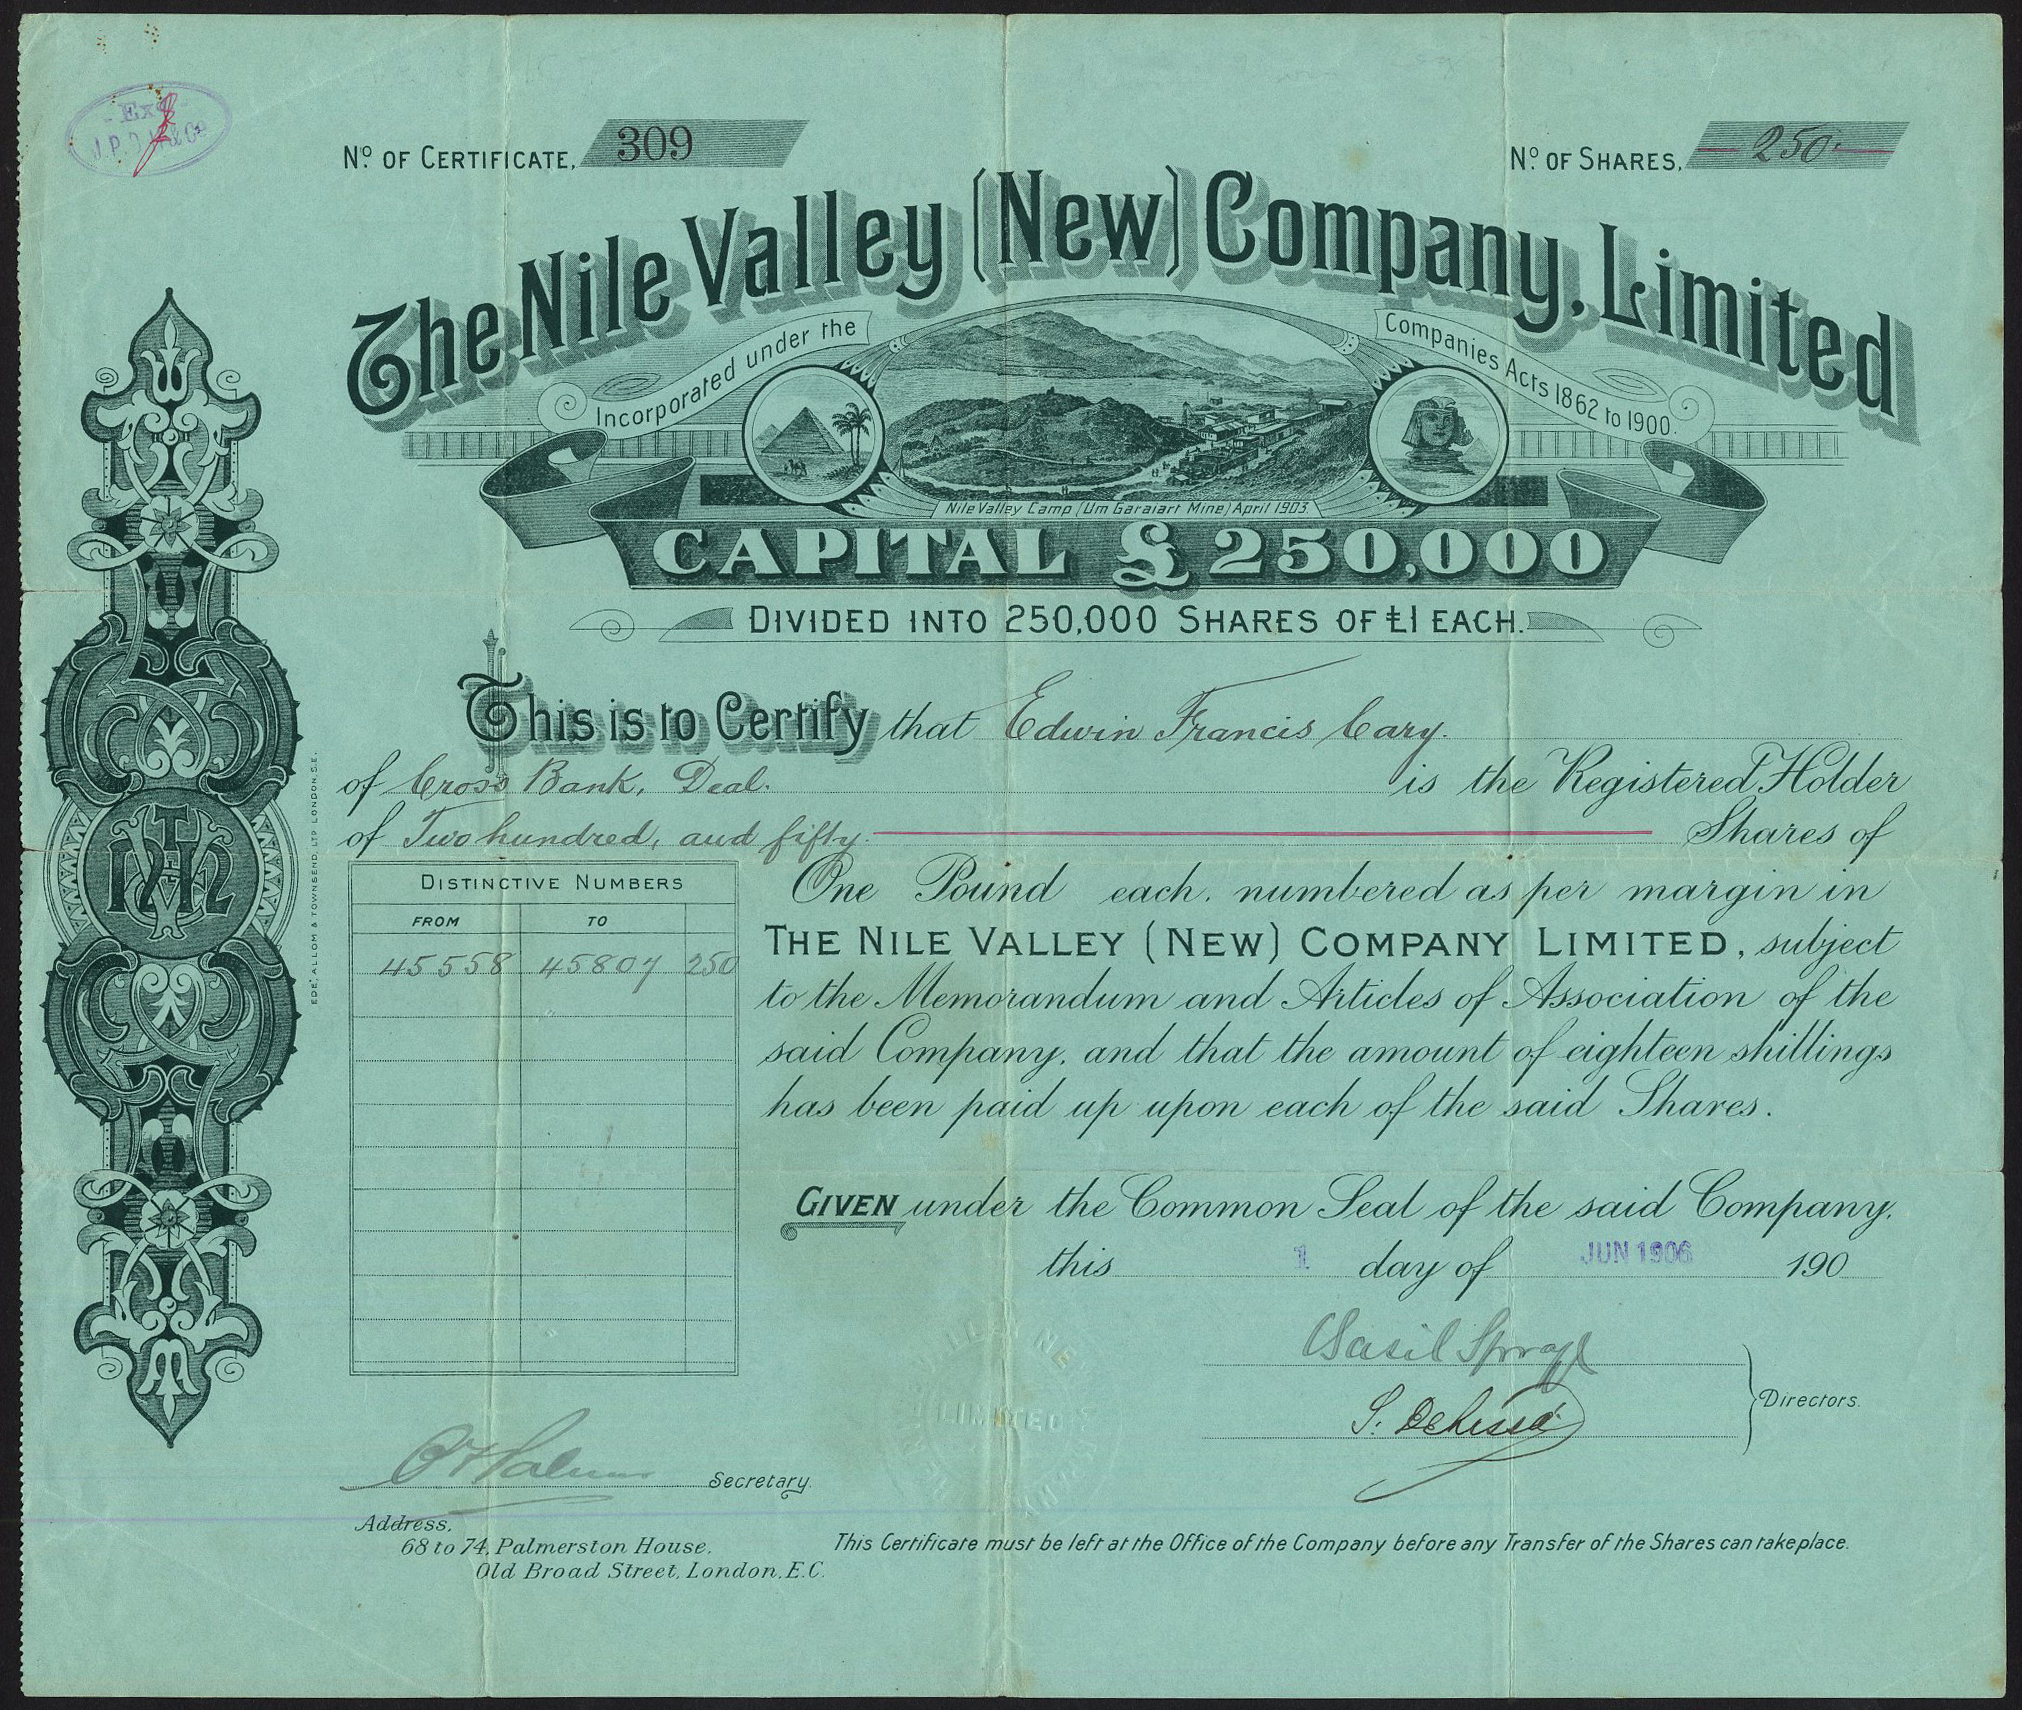 Exd
No. OF CERTIFICATE, 309
No. OF SHARES, 250
The Nile Valley (New) Company, Limited
Incorporated under the Companies Acts 1862 to 1900.
Nile Valley Camp (Um Garaiart Mine) April 1903.
CAPITAL £250,000
DIVIDED INTO 250,000 SHARES OF £1 EACH.
This is to Certify that Edwin Francis Cary.
of Cross Bank, Deal. is the Registered Holder
of Two hundred, and fifty Shares of
One Pound each, numbered as per margin in
THE NILE VALLEY (NEW) COMPANY LIMITED, subject
to the Memorandum and Articles of Association of the
said Company, and that the amount of eighteen shillings
has been paid up upon each of the said Shares.
DISTINCTIVE NUMBERS
FROM TO
45558 45807 250
GIVEN under the Common Seal of the said Company,
this 1 day of JUN 1906 190
Directors.
Secretary.
LIMITED
Address,
68 to 74, Palmerston House,
Old Broad Street, London, E.C.
This Certificate must be left at the Office of the Company before any Transfer of the Shares can take place.
EDE, ALLOM & TOWNSEND, LTD LONDON S.E.